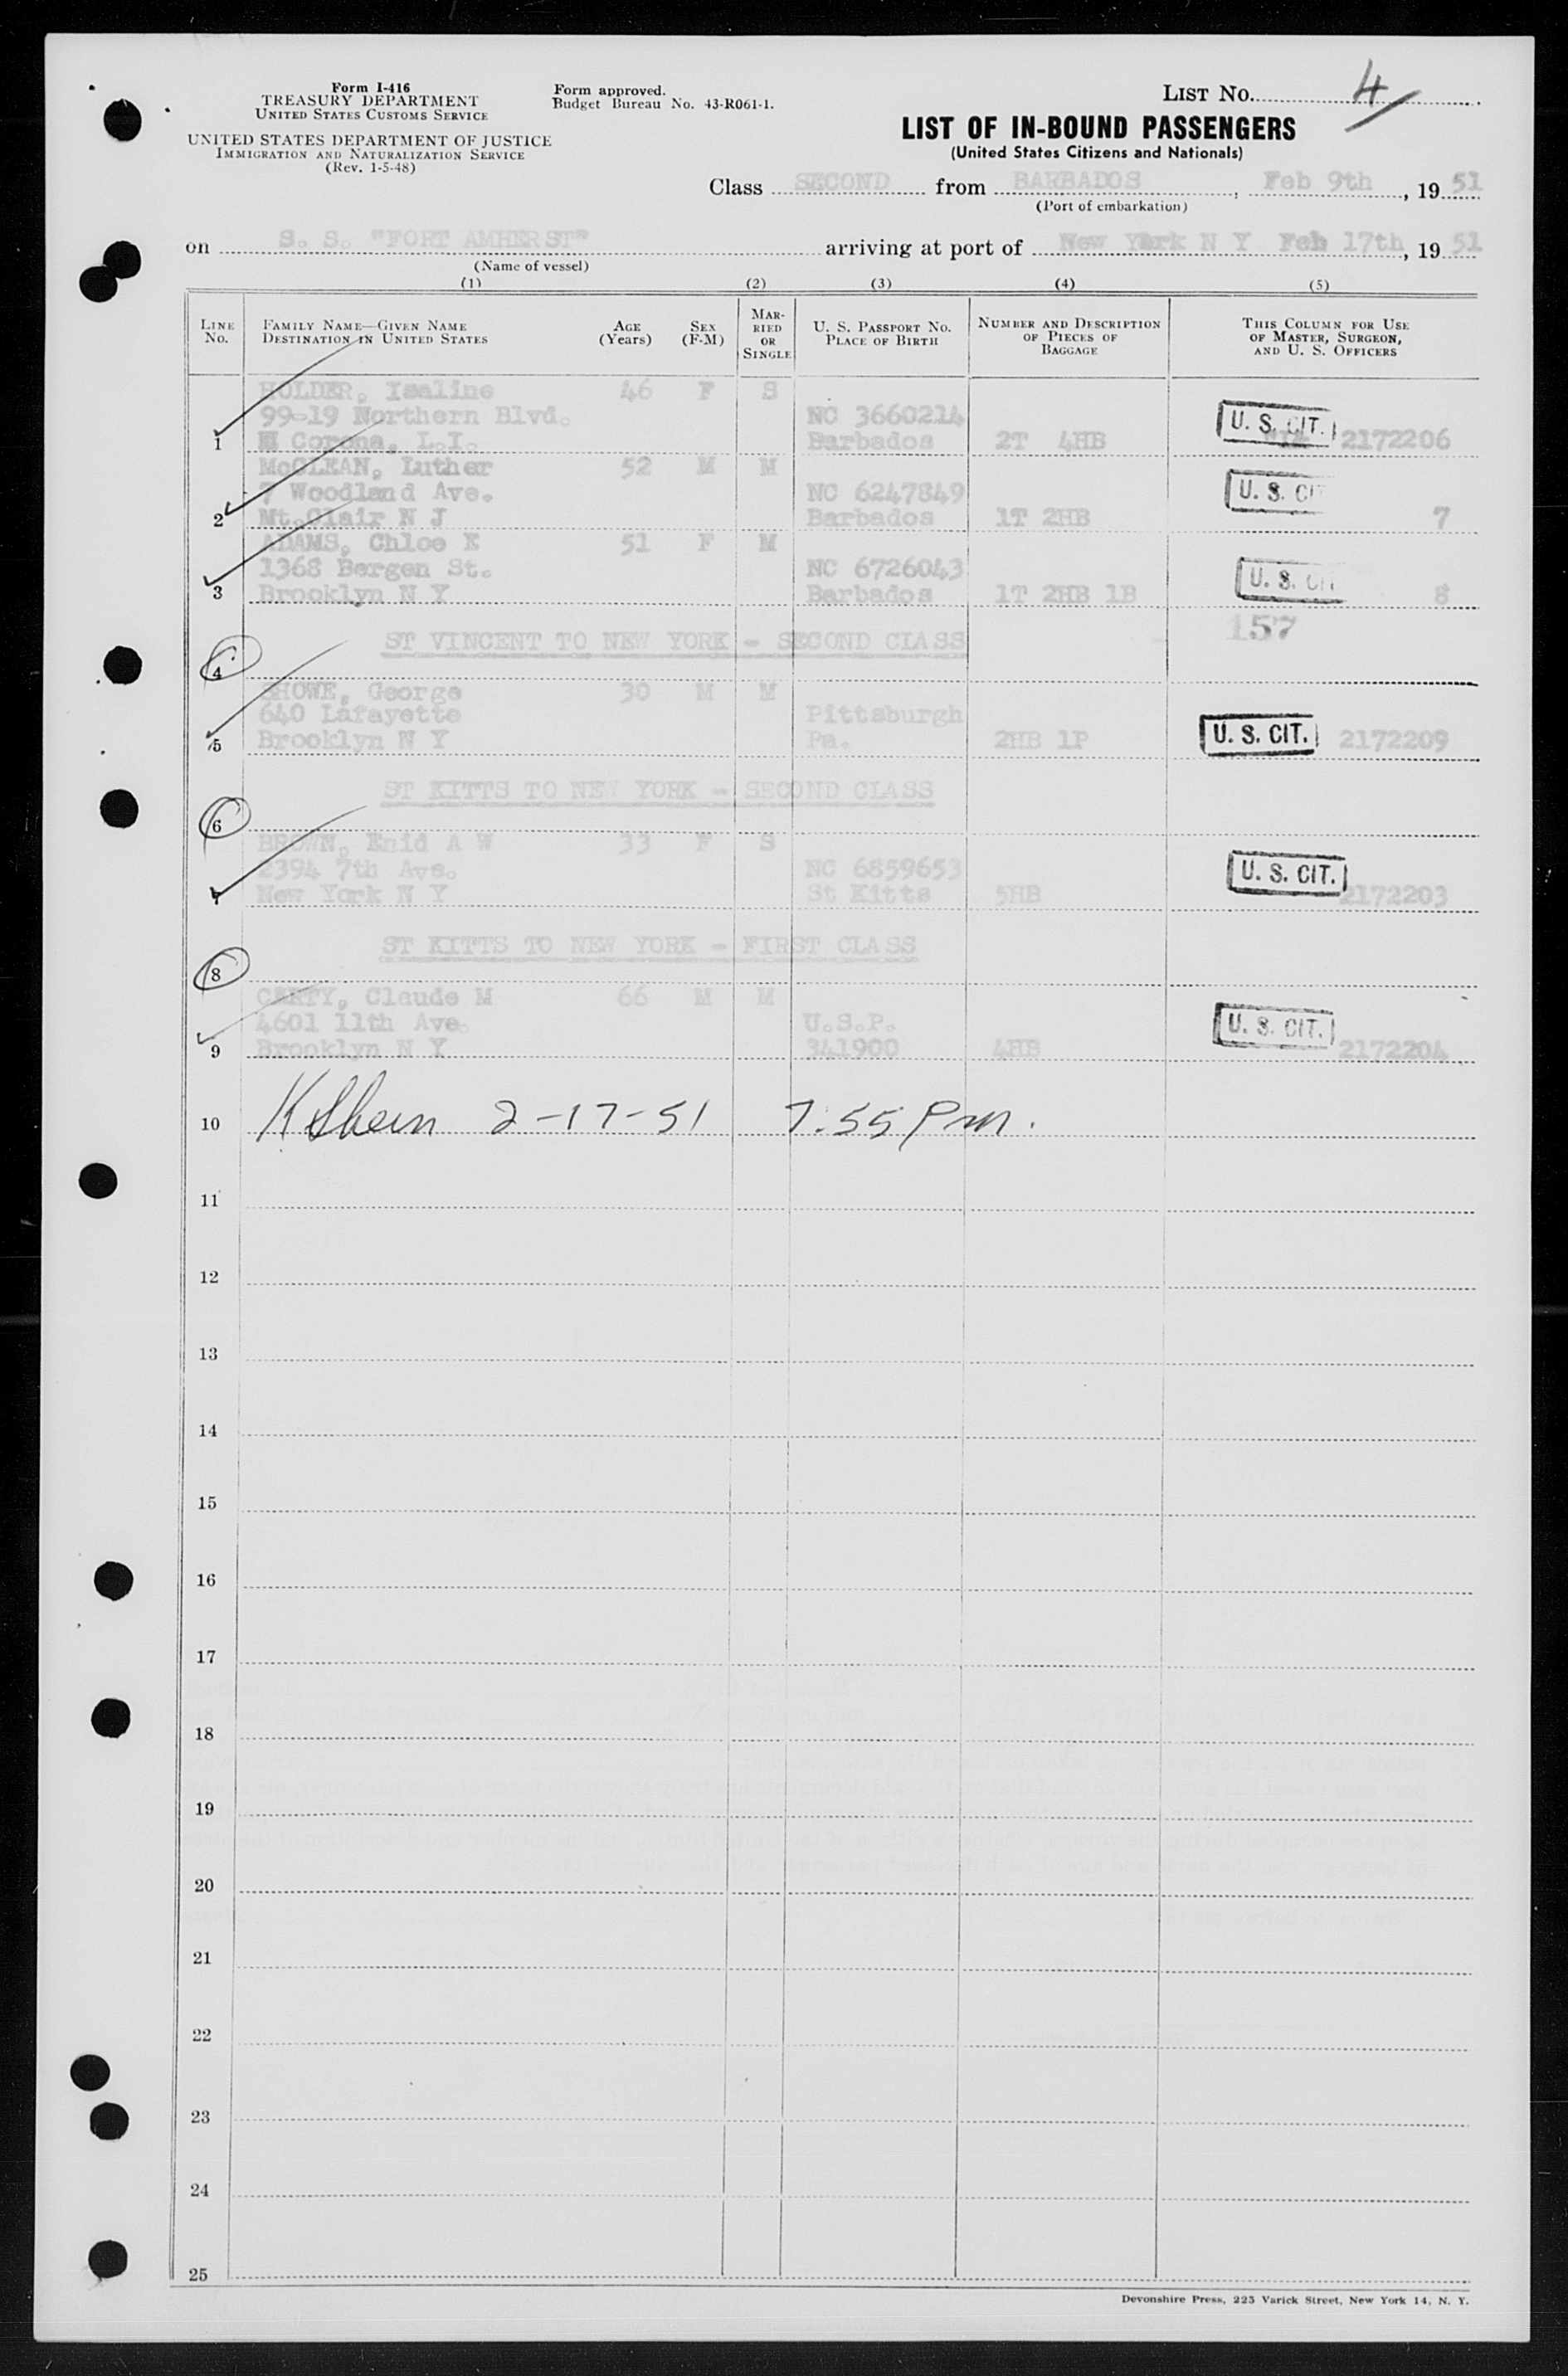 Form I-416
TREASURY DEPARTMENT
UNITED STATES CUSTOMS SERVICE
UNITED STATES DEPARTMENT OF JUSTICE
IMMIGRATION AND NATURALIZATION SERVICE
(Rev. 1-5-48)
Form approved.
Budget Bureau No. 43-R061-1.
LIST No. 4
LIST OF IN-BOUND PASSENGERS
(United States Citizens and Nationals)
Class SECOND from BARBADOS, Feb 9th, 19 51
(Port of embarkation)
on S. S. "FORT AMHERST" arriving at port of New York N Y Feb 17th, 19 51
(Name of vessel)
(1) (2) (3) (4) (5)
LINE No.
FAMILY NAME—GIVEN NAME
DESTINATION IN UNITED STATES
AGE (Years)
SEX (F-M)
MARRIED OR SINGLE
U. S. PASSPORT NO.
PLACE OF BIRTH
NUMBER AND DESCRIPTION OF PIECES OF BAGGAGE
THIS COLUMN FOR USE OF MASTER, SURGEON, AND U. S. OFFICERS
HOLDER, Ismline 46 F S
99-19 Northern Blvd. NC 3660214 U. S. CIT.
1 Corona, L.I. Barbados 2T 4HB 2172206
McCLEAN, Luther 52 M M
7 Woodland Ave. NC 6247849 U. S. CI
2 Mt.Clair N J Barbados 1T 2HB 7
ADAMS, Chloe E 51 F M
1368 Bergen St. NC 6726043 U. S. CIT
3 Brooklyn N Y Barbados 1T 2HB 1B 8
ST VINCENT TO NEW YORK - SECOND CLASS 157
4
SHOWE, George 30 M M
640 Lafayette Pittsburgh
5 Brooklyn N Y Pa. 2HB 1P U. S. CIT. 2172209
ST KITTS TO NEW YORK - SECOND CLASS
6
BROWN, Enid A W 33 F S
2394 7th Ave. NC 6859653 U. S. CIT.
7 New York N Y St Kitts 5HB 2172203
ST KITTS TO NEW YORK - FIRST CLASS
8
CARTY, Claude M 66 M M
4601 11th Ave. U.S.P. U. S. CIT.
9 Brooklyn N Y 341900 4HB 2172204
10 2-17-51 7:55 Pm.
11
12
13
14
15
16
17
18
19
20
21
22
23
24
25
Devonshire Press, 225 Varick Street, New York 14, N. Y.